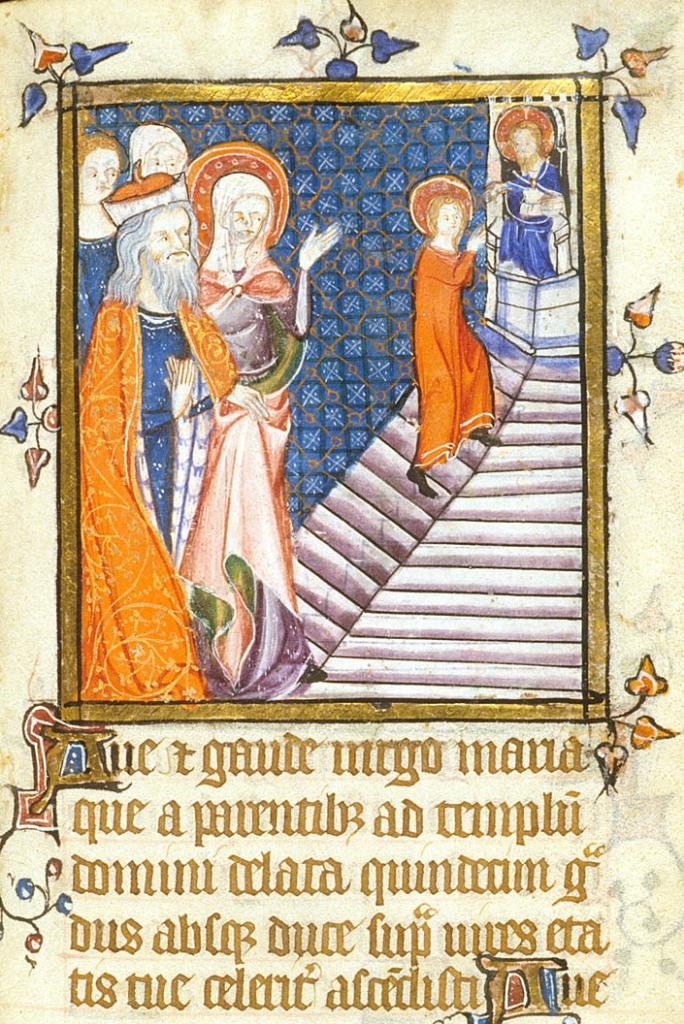 Aue ⁊ gaude uirgo maria
que a parentibꝫ ad templū
domini delata quindecim gͣ
dus absqꝫ duce supͣ uires eta
tis tue celerit᷑ ascēdisti Aue